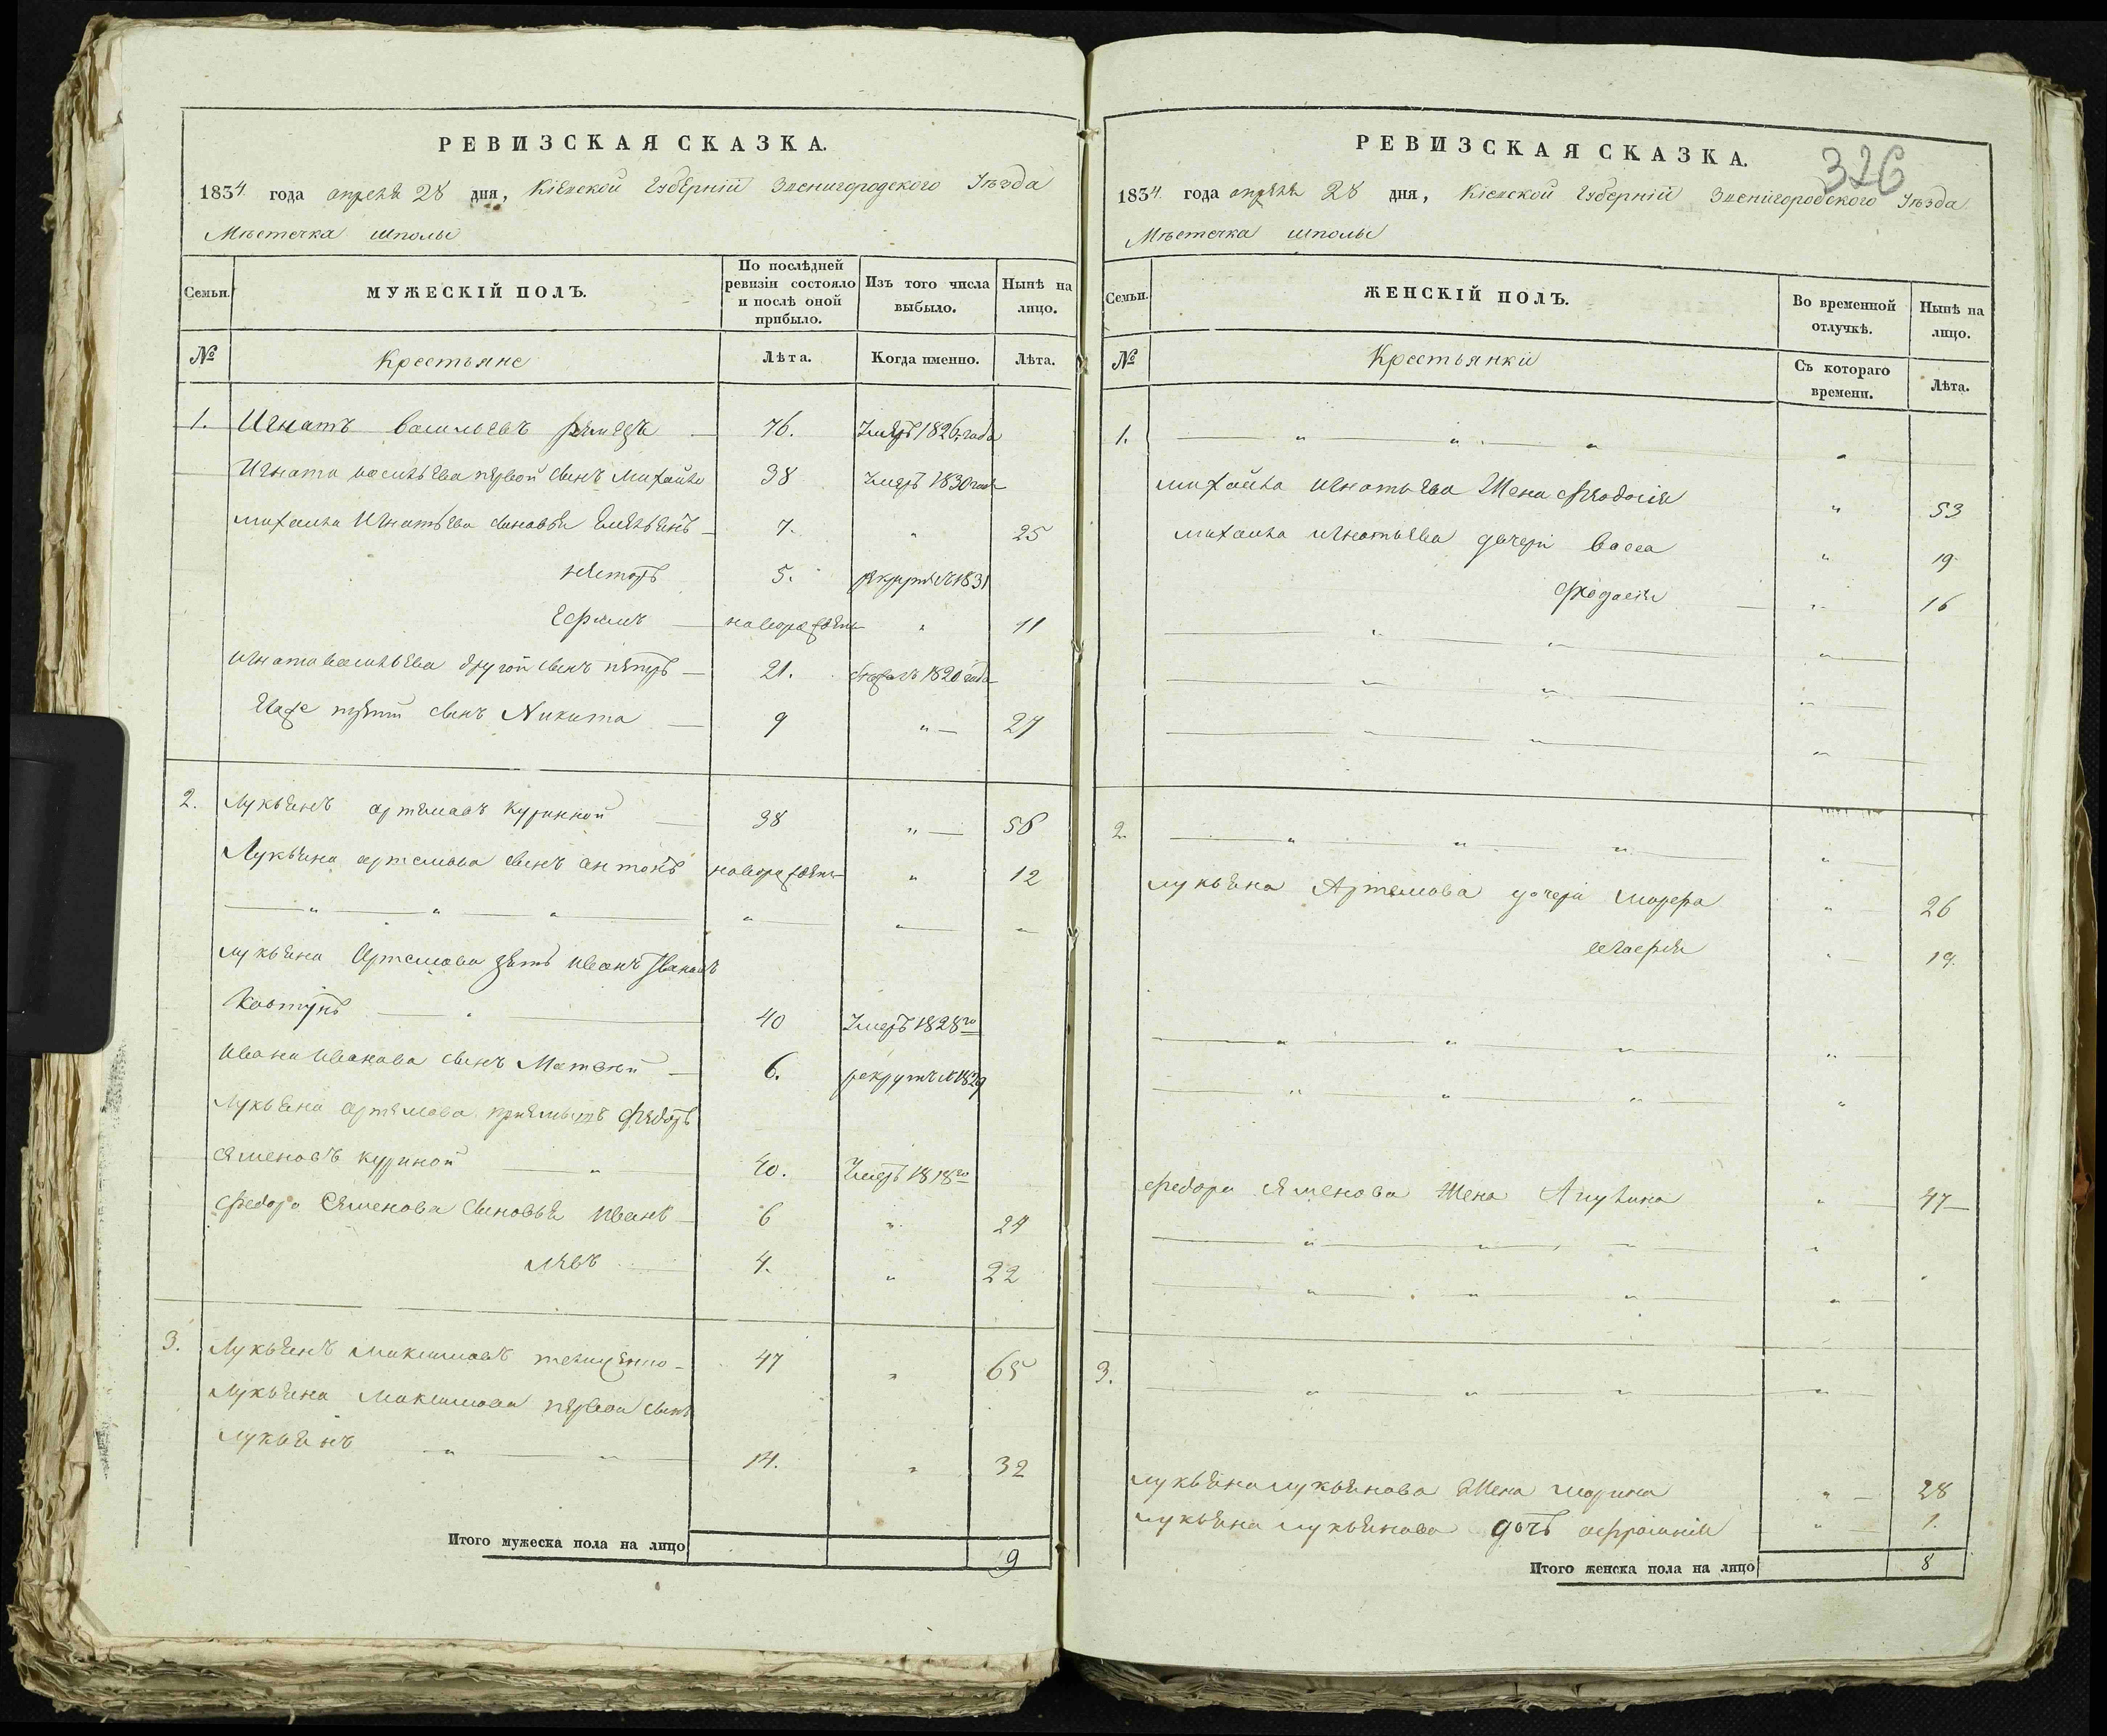 РЕВИЗСКАЯ СКАЗКА.
1834 года апреля 28 дня, Кіевской Губерніи Звенигородского Уѣзда
Мѣстечка Шполы
Семьи.
МУЖЕСКІЙ ПОЛЪ.
По послѣдней ревизіи состояло и послѣ оной прибыло.
Изъ того числа выбыло.
Нынѣ на лицо.
№
Крестьяне
Лѣта.
Когда именно.
Лѣта.
1. Игнатъ Васильевъ 76. Умеръ 1826 года
Игната Васильева первой сынъ Михайло 38 Умеръ 1830 года
Михайла Игнатьева сыновья Емельянъ 7. " 25
Несторъ 5. рекрутъ въ 1831
Ефимъ новорожденъ " 11
Игната Васильева другой сынъ Петръ 21. 1820 года
Его же третій сынъ Никита 9 " 27
2. Лукьянъ Артемовъ Куринной 38 " 56
Лукьяна Артемова сынъ Антонъ новорожденъ " 12
" " " " " "
Лукьяна Артемова зять Иванъ Ивановъ
Ковтунъ " 40 Умеръ 1828го
Ивана Иванова сынъ Матвей 6. рекрутъ въ 1829
Лукьяна Артемова приемышъ Федоръ
Семеновъ Куриной " 40. Умеръ 1818го
Федора Семенова сыновья Иванъ 6 " 24
Левъ 4. " 22
3. Лукьянъ Максимовъ 47 " 65
Лукьяна Максимова первой сынъ
Лукьянъ " " 14. " 32
Итого мужеска пола на лицо 9
РЕВИЗСКАЯ СКАЗКА.
326
1834 года апреля 28 дня, Кіевской Губерніи Звенигородского Уѣзда
Мѣстечка Шполы
Семьи.
ЖЕНСКІЙ ПОЛЪ.
Во временной отлучкѣ.
Нынѣ на лицо.
№
Крестьянки
Съ котораго времени.
Лѣта.
1. " " " "
Михайла Игнатьева жена Феодосія " 53
Михайла Игнатьева дочери Васса " 19
Феодосія " 16
" " "
" " "
" " "
2. " " " "
Лукьяна Артемова дочери Марфа " 26
" 19.
" " " "
" " " "
Федора Семенова жена Акулина " 47
" " " "
" " " "
3. " " " "
Лукьяна Лукьянова жена Марина " 28
Лукьяна Лукьянова дочь " 1.
Итого женска пола на лицо 8